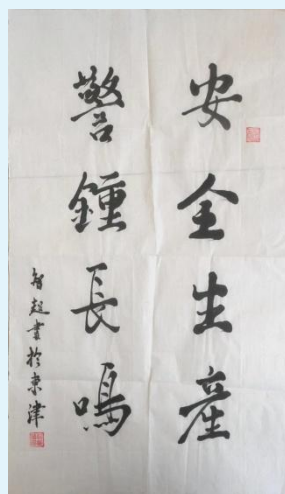 安全生產
警鍾長鳴
智超書於東津